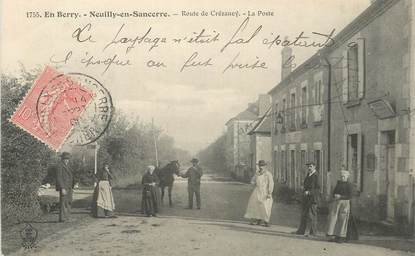 1755. En Berry. - Neuilly-en-Sancerre. - Route de Crézancy. - La Poste
Le paysage n'était pas épatant à
l'époque où fut prise la